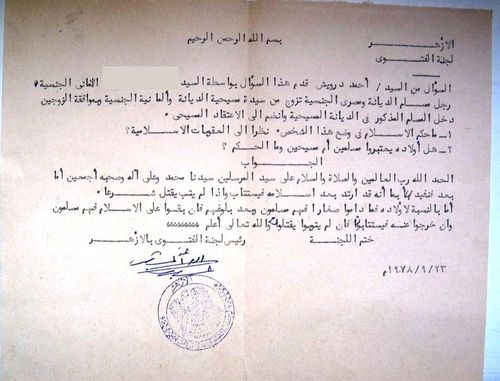 بسم الله الرحمن الرحيم
الأزهر
لجنة الفتوى
السؤال من السيد / أحمد درويش قدم هذا السؤال بواسطة السيد الالمانى الجنسية
رجل مسلم الديانة ومصرى الجنسية تزوج من سيدة مسيحية الديانة وألمانية الجنسية وبموافقة الزوجين
دخل المسلم المذكور فى الديانة المسيحية وانضم الى الاعتقاد المسيحى
١ - ماحكم الاسلام فى وضع هذا الشخص نظرا الى العقوبات الاسلامية ؟
٢ - هل أولاده يعتبروا مسلمين أم مسيحين وما الحكم ؟
الجواب
الحمد لله رب العالمين والصلاة والسلام على سيد المرسلين سيدنا محمد وعلى آله وصحبه أجمعين أما
بعد فنفيد بأنه قد ارتد بعد اسلامه فيستتاب فاذا لم يتب يقتل شرعا
أما بالنسبة لاولاده فما داموا صغارا فهم مسلمون وبعد بلوغهم فان بقوا على الاسلام فهم مسلمون
وأن خرجوا عنه فيستتابوا فان لم يتوبوا يقتلوا والله تعالى أعلم
ختم اللجنة رئيس لجنة الفتوى بالأزهر
١٩٧٨/٩/٢٣م